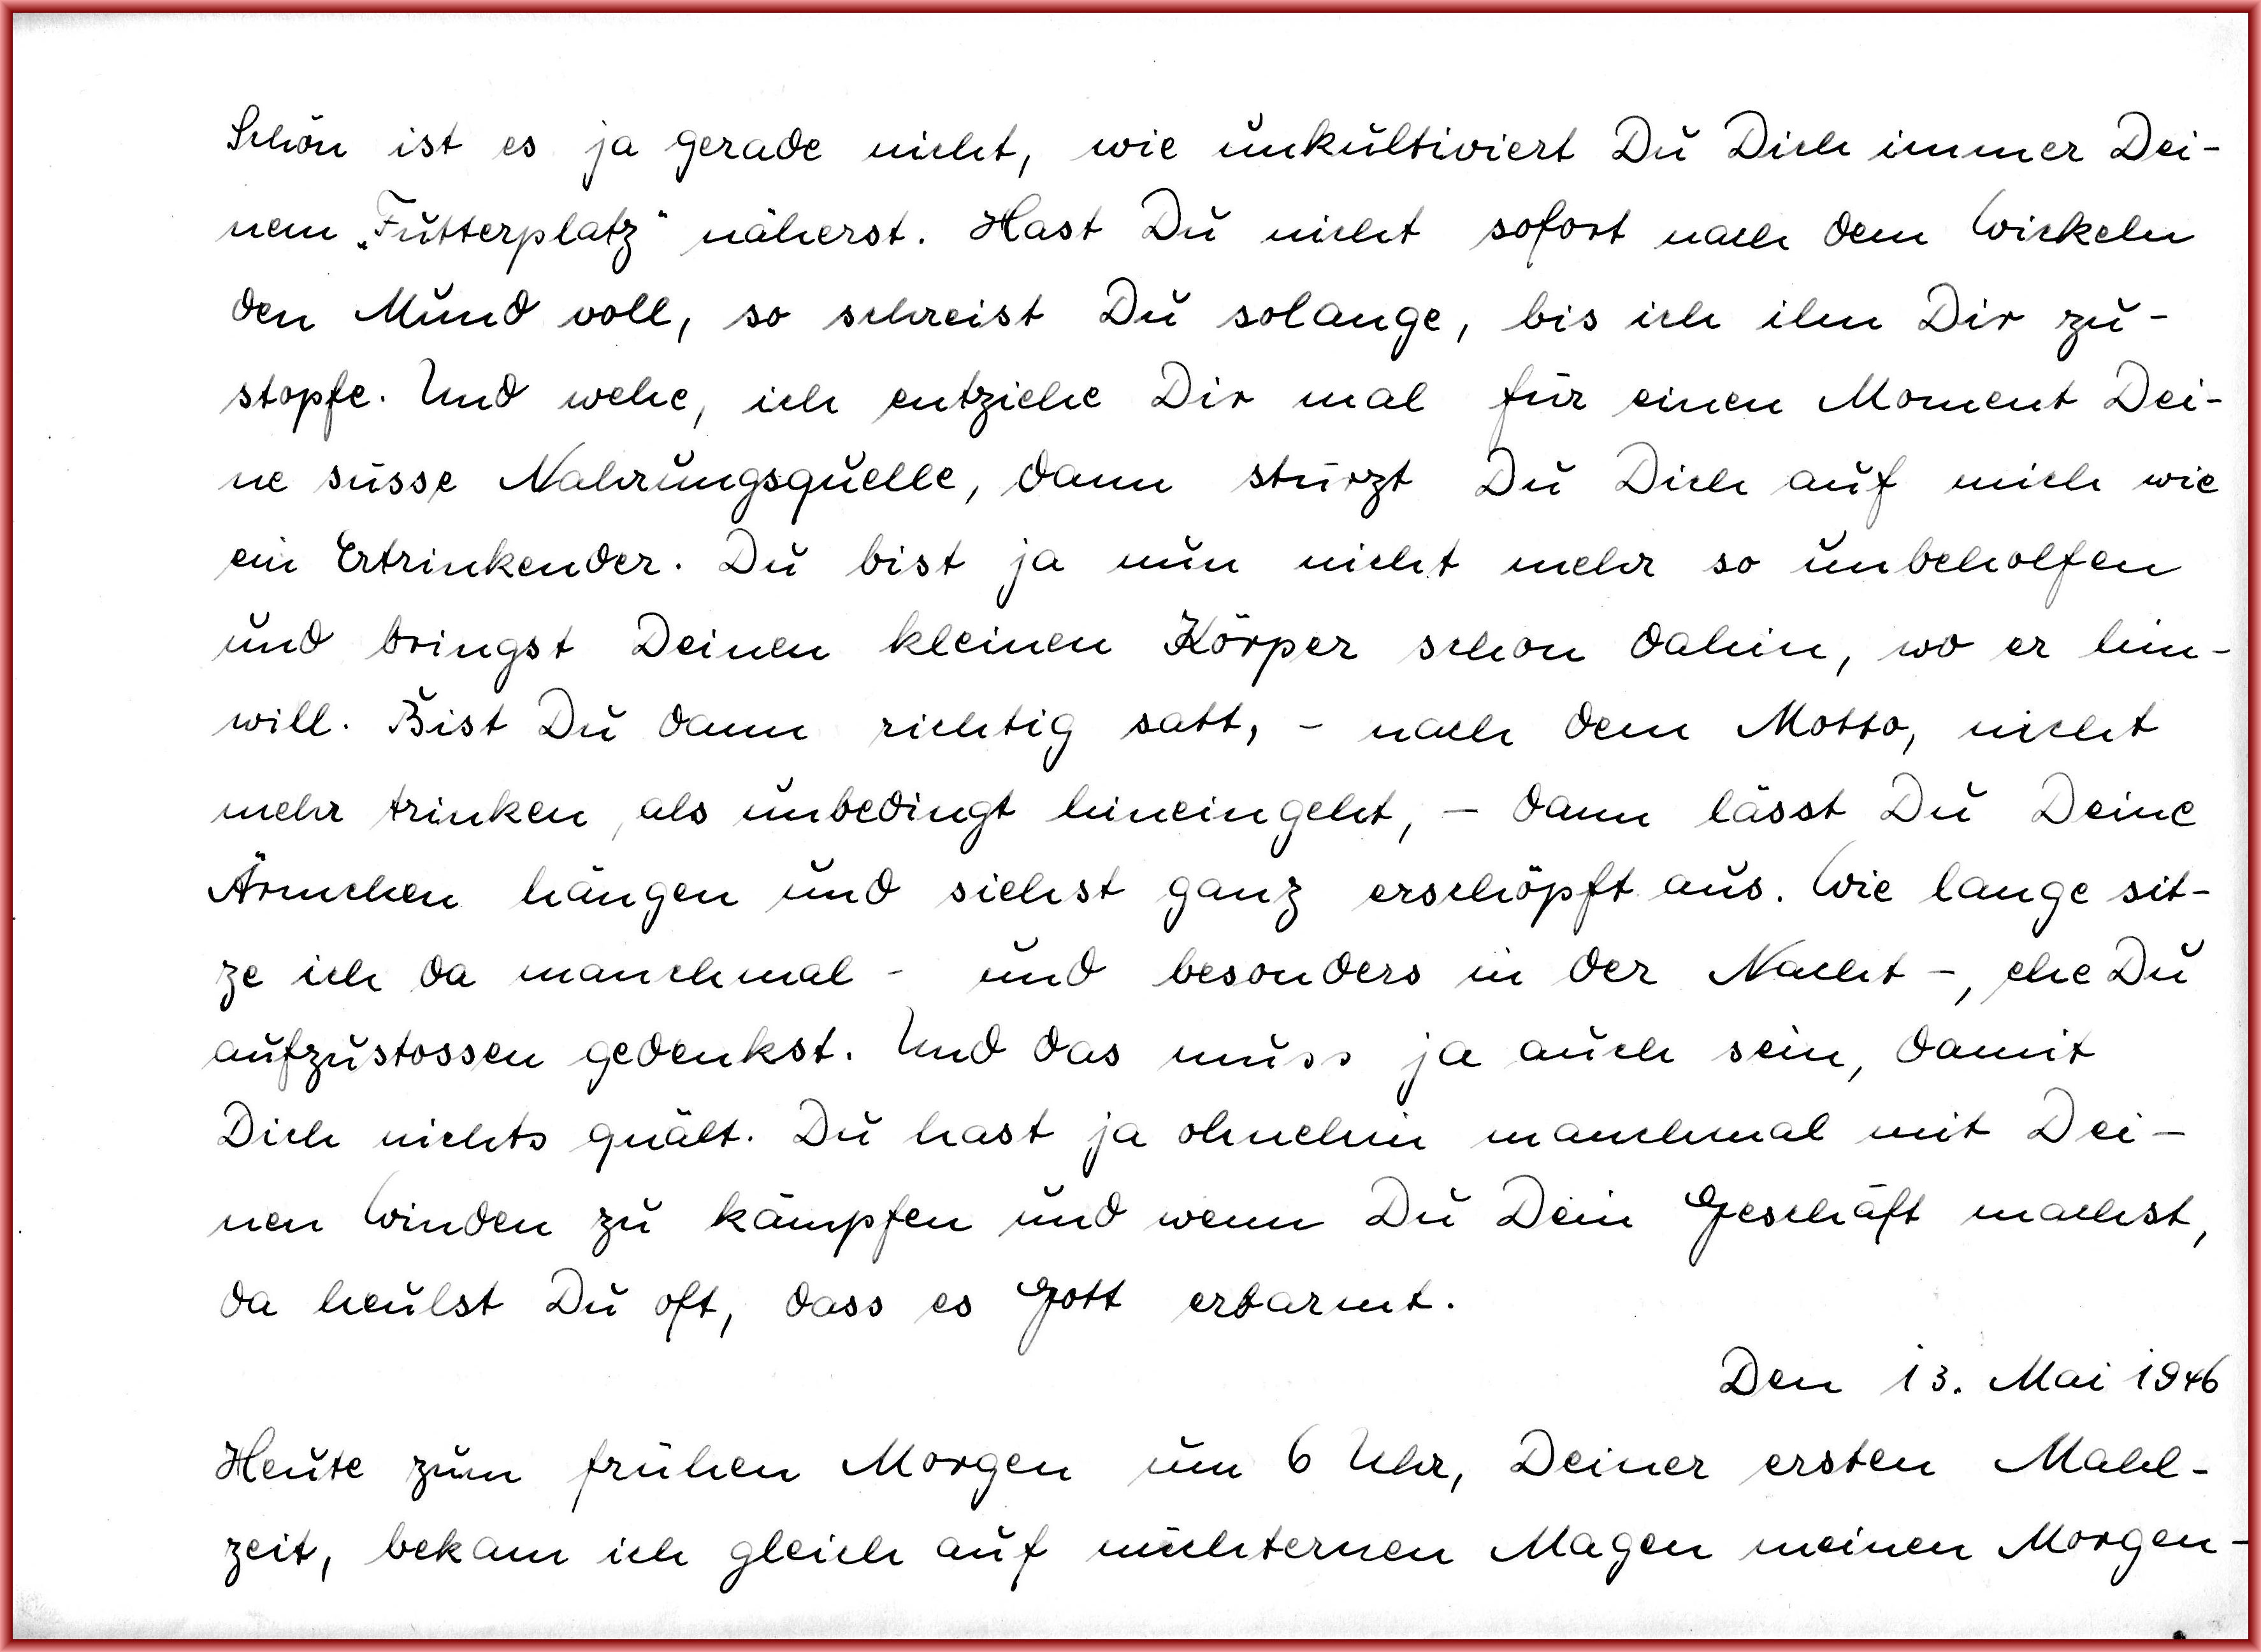 Schön ist es ja gerade nicht, wie unkultiviert Du Dich immer Dei-
nem „Futterplatz“ näherst. Hast Du nicht sofort nach dem Wickeln
den Mund voll, so schreist Du solange, bis ich ihn Dir zu-
stopfe. Und wehe, ich entziehe Dir mal für einen Moment Dei-
ne süsse Nahrungsquelle, dann stürzt Du Dich auf mich wie
ein Ertrinkender. Du bist ja nun nicht mehr so unbeholfen
und bringst Deinen kleinen Körper schon dahin, wo er hin-
will. Bist Du dann richtig satt, - nach dem Motto, nicht
mehr trinken, als unbedingt hineingeht, - dann lässt Du Deine
Ärmchen hängen und siehst ganz erschöpft aus. Wie lange sit-
ze ich da manchmal - und besonders in der Nacht -, ehe Du
aufzustossen gedenkst. Und das muss ja auch sein, damit
Dich nichts quält. Du hast ja ohnehin manchmal mit Dei-
nen Winden zu kämpfen und wenn Du Dein Geschäft machst,
da heulst Du oft, dass es Gott erbarmt.
Den 13. Mai 1946
Heute zum frühen Morgen um 6 Uhr, Deiner ersten Mahl-
zeit, bekam ich gleich auf nüchternen Magen meinen Morgen-